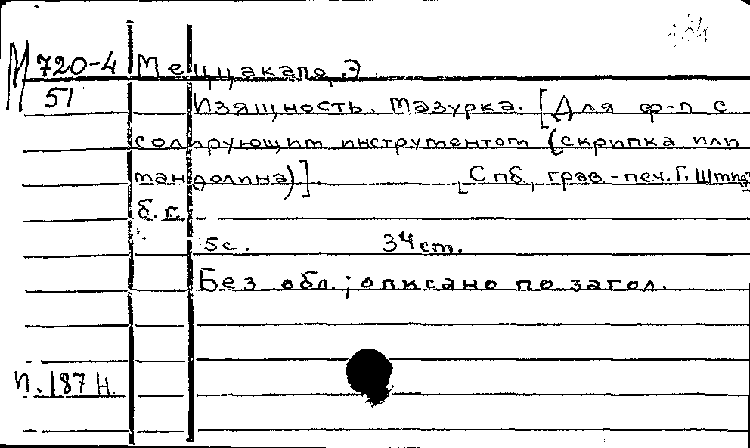 М 720-4 Меццакапо, Э
51 Изящность. Мазурка. [Для ф-п с
солирующим инструментом (скрипка или
мандолина)]. [Спб, грав.-печ. Г. Шмид,
б. г.
5с. 34 cm.
Без обл.; описано по загол.
п. 187 н.